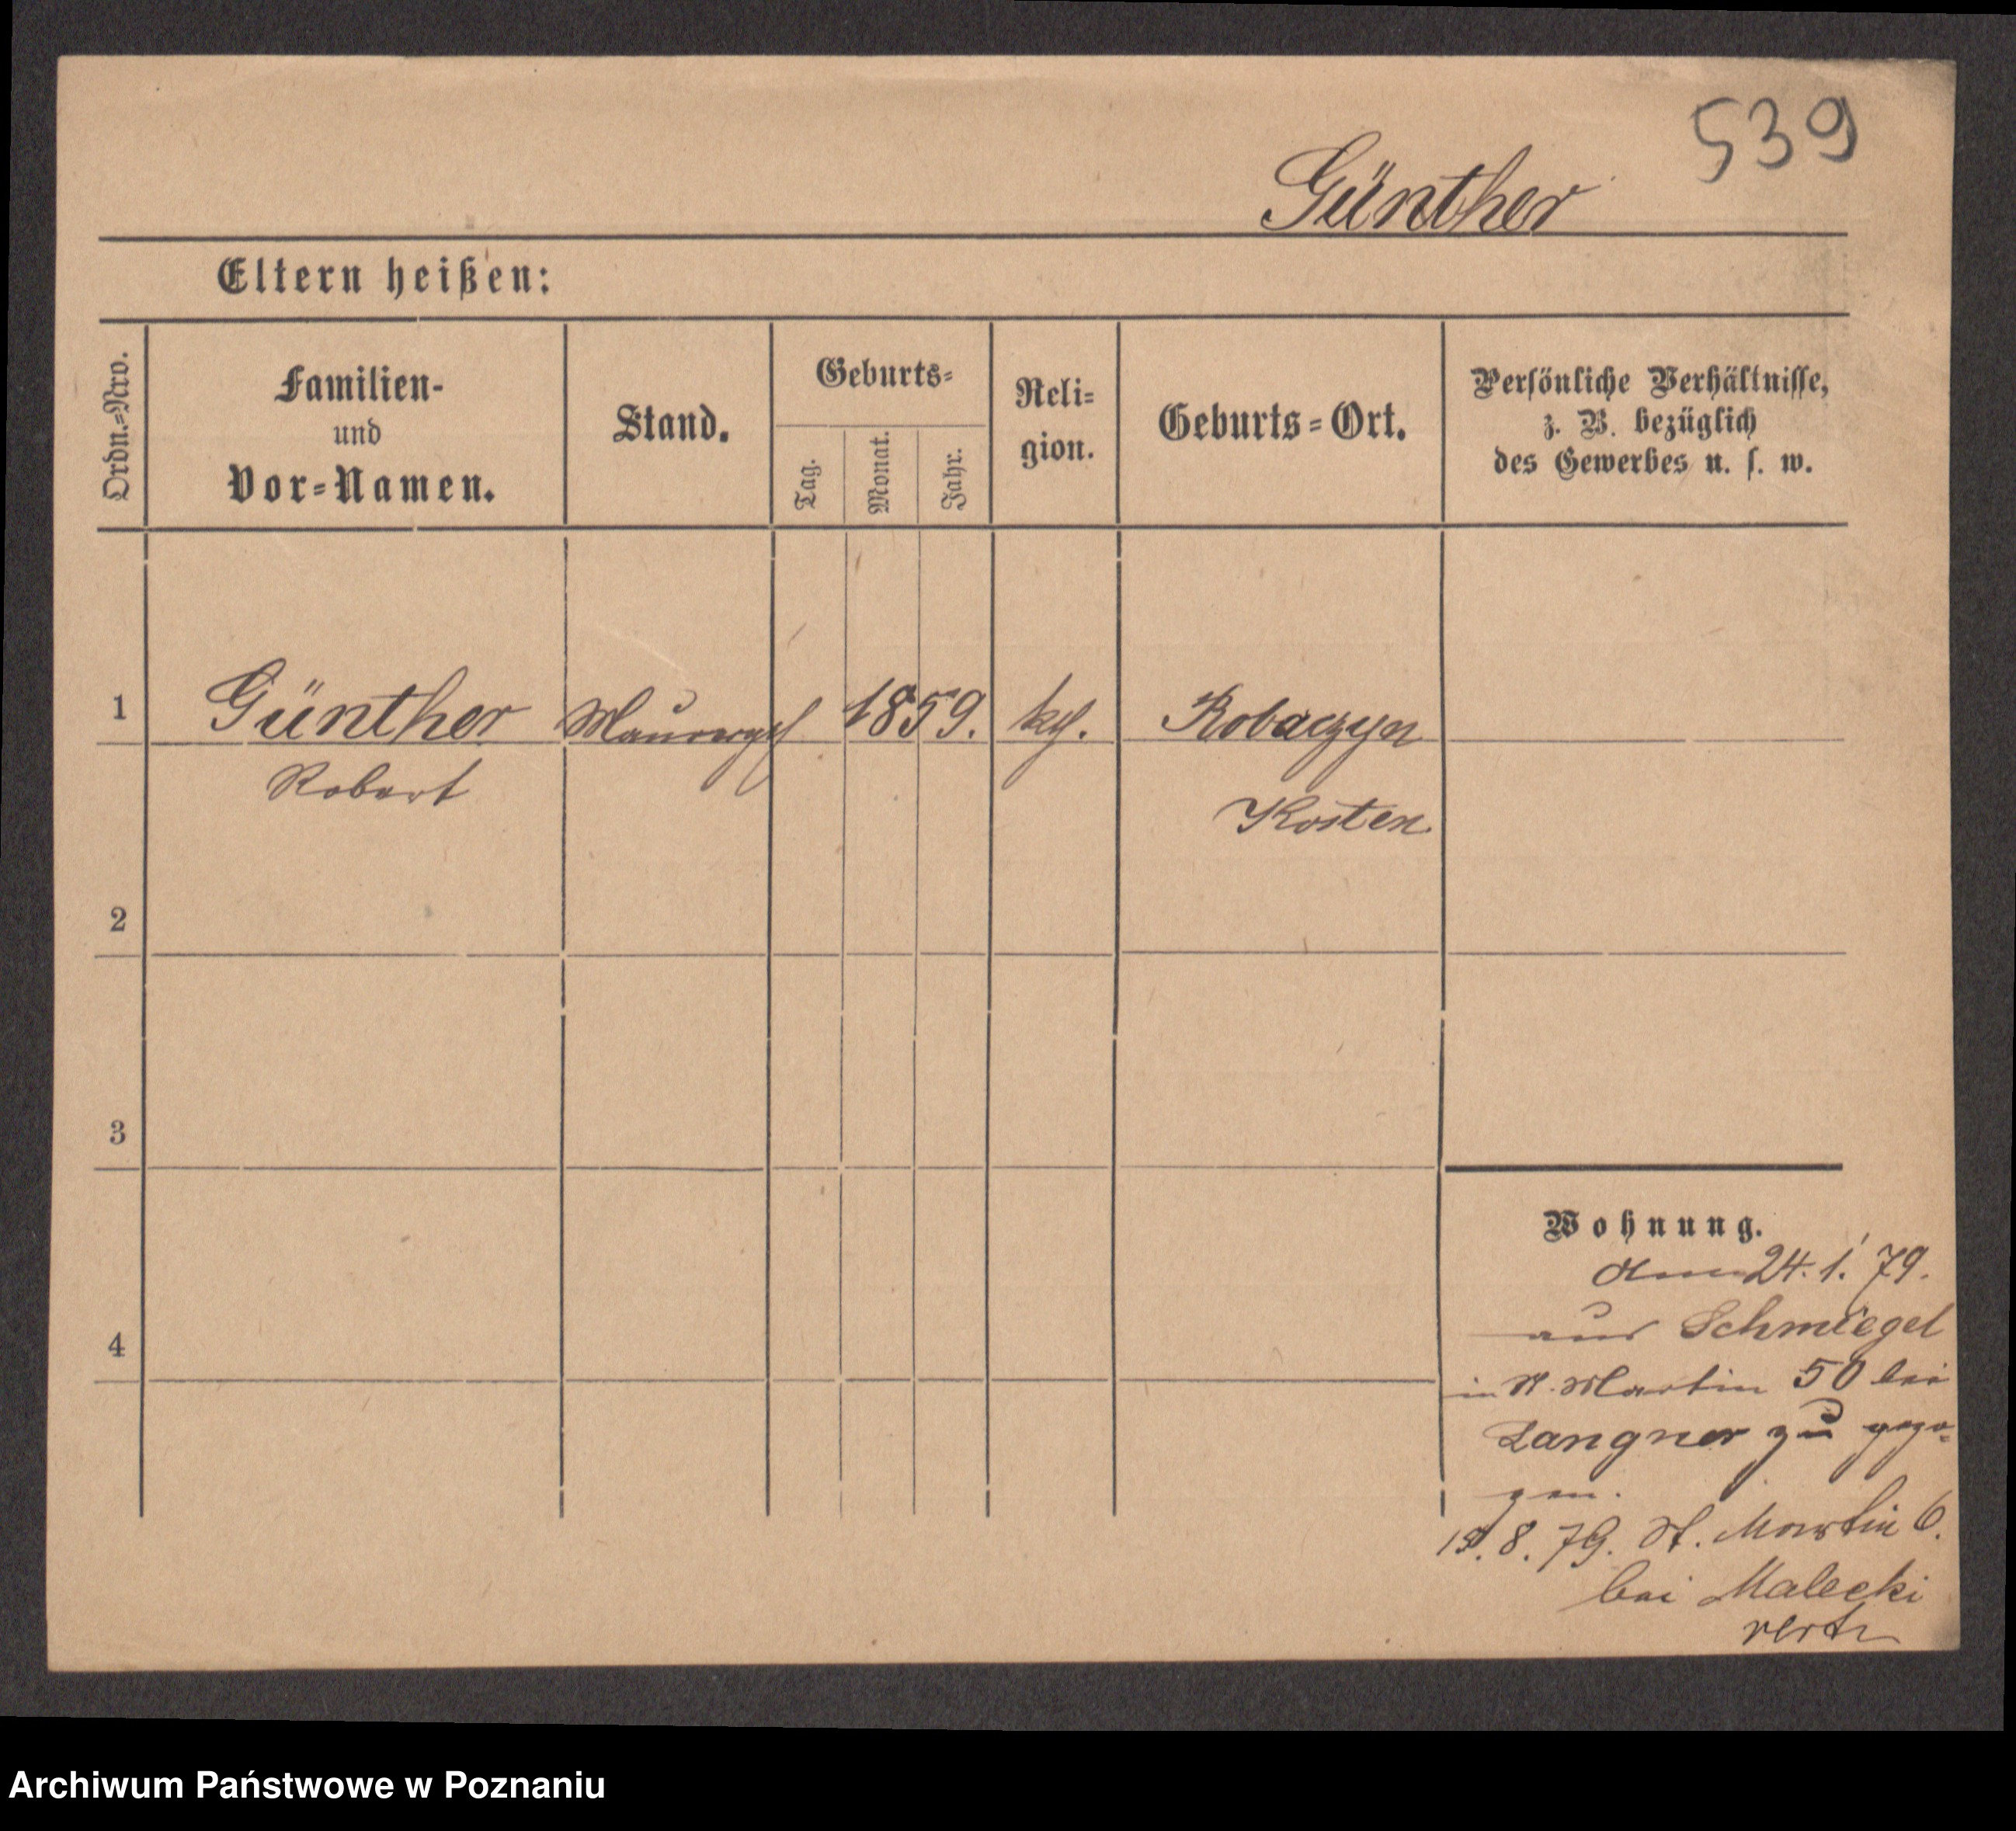 539
Günther
Eltern heißen:
Ordn.=Nro.
Familien-
und
Vor=Namen.
Stand.
Geburts=
Tag.
Monat.
Jahr.
Reli=
gion.
Geburts=Ort.
Persönliche Verhältnisse,
z. B. bezüglich
des Gewerbes u. s. w.
1 Günther 1859. Robaczyn
Robert
Kosten
2
3
4
Wohnung.
24. 1. 79.
aus Schmiegel
in St. Martin 50 bei
Langner zu gezo=
gen.
8. 79. St. Martin 6.
bei Malecki
Archiwum Państwowe w Poznaniu